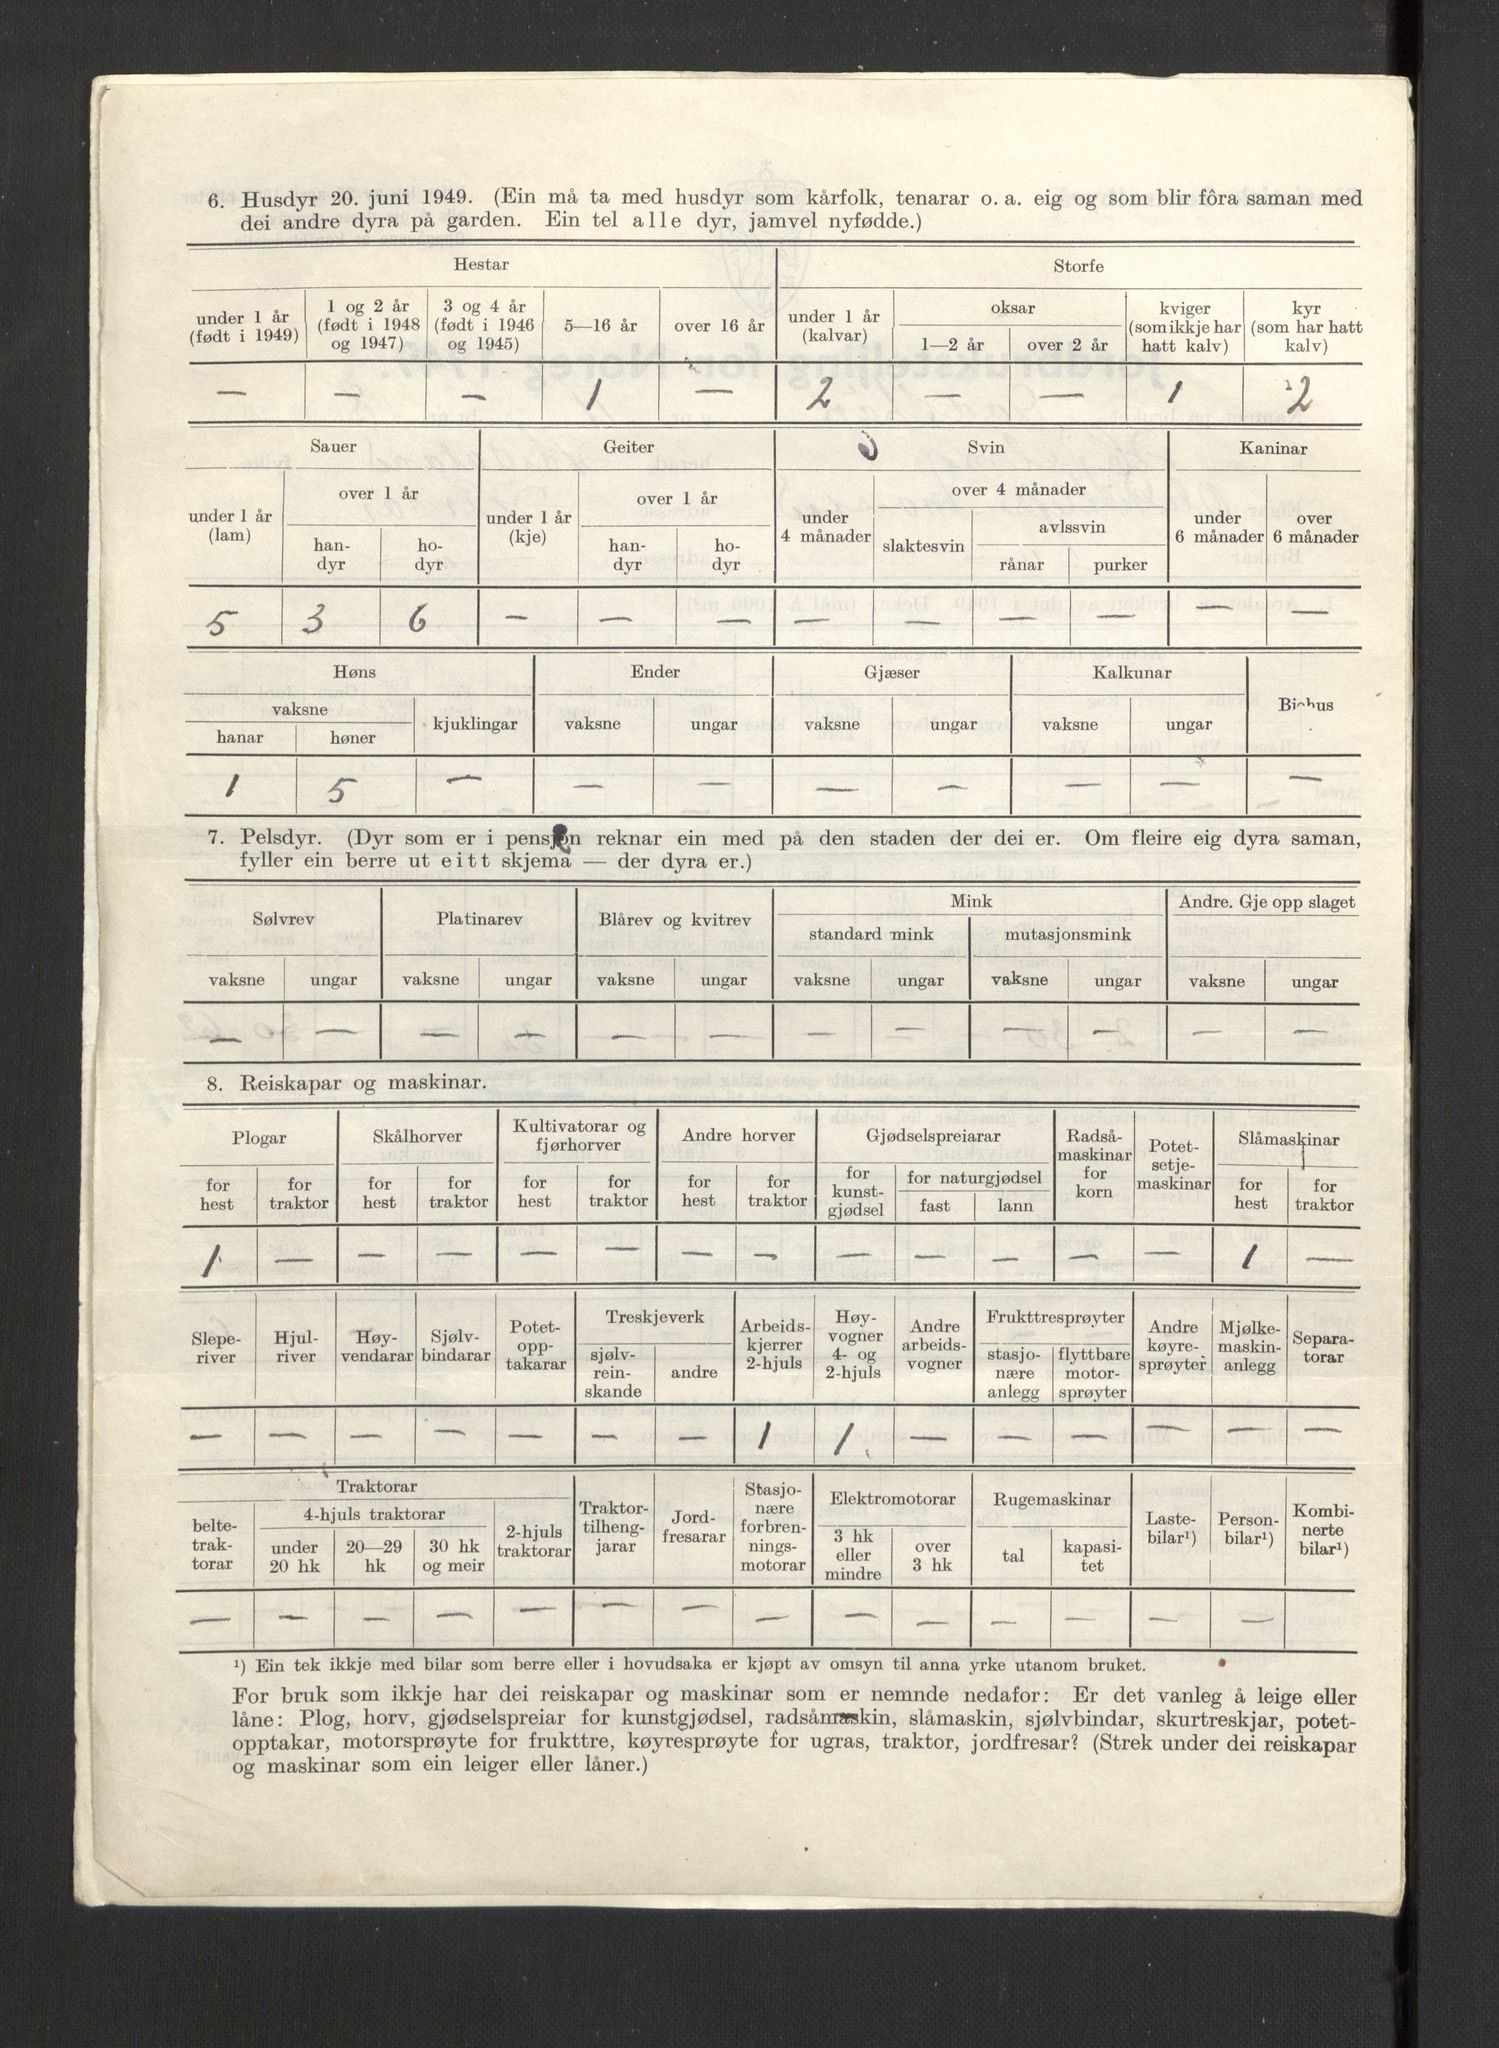 6. Husdyr 20. juni 1949. (Ein må ta med husdyr som kårfolk, tenarar o. a. eig og som blir fôra saman med
dei andre dyra på garden. Ein tel alle dyr, jamvel nyfødde.)
Hestar Storfe
under 1 år (født i 1949) 1 og 2 år (født i 1948 og 1947) 3 og 4 år (født i 1946 og 1945) 5—16 år over 16 år under 1 år (kalvar) oksar 1—2 år over 2 år kviger (som ikkje har hatt kalv) kyr (som har hatt kalv)
— — — 1 — 2 — — 1 2
Sauer Geiter Svin Kaninar
under 1 år (lam) over 1 år han-dyr ho-dyr under 1 år (kje) over 1 år han-dyr ho-dyr under 4 månader over 4 månader slaktesvin avlssvin rånar purker under 6 månader over 6 månader
5 3 6 — — — — — — — — —
Høns Ender Gjæser Kalkunar Biehus
vaksne hanar høner kjuklingar vaksne ungar vaksne ungar vaksne ungar
1 5 — — — — — — — —
7. Pelsdyr. (Dyr som er i pensjon reknar ein med på den staden der dei er. Om fleire eig dyra saman,
fyller ein berre ut eitt skjema — der dyra er.)
Sølvrev Platinarev Blårev og kvitrev Mink Andre. Gje opp slaget
standard mink mutasjonsmink
vaksne ungar vaksne ungar vaksne ungar vaksne ungar vaksne ungar vaksne ungar
— — — — — — — — — — — —
8. Reiskapar og maskinar.
Plogar Skålhorver Kultivatorar og fjørhorver Andre horver Gjødselspreiarar Radså-maskinar for korn Potet-setje-maskinar Slåmaskinar
for hest for traktor for hest for traktor for hest for traktor for hest for traktor for kunst-gjødsel for naturgjødsel fast lann for hest for traktor
1 — — — — — — — — — — — — 1 —
Slepe-river Hjul-river Høy-vendarar Sjølv-bindarar Potet-opp-takarar Treskjeverk sjølv-rein-skande andre Arbeids-kjerrer 2-hjuls Høy-vogner 4- og 2-hjuls Andre arbeids-vogner Frukttresprøyter stasjo-nære anlegg flyttbare motor-sprøyter Andre køyre-sprøyter Mjølke-maskin-anlegg Separa-torar
— — — — — — — 1 1 — — — — — —
Traktorar
belte-trak-torar 4-hjuls traktorar under 20 hk 20—29 hk 30 hk og meir 2-hjuls traktorar Traktor-tilheng-jarar Jord-fresarar Stasjo-nære forbren-nings-motorar Elektromotorar 3 hk eller mindre over 3 hk Rugemaskinar tal kapasi-tet Laste-bilar¹) Person-bilar¹) Kombi-nerte bilar¹)
— — — — — — — — — — — — — —
¹) Ein tek ikkje med bilar som berre eller i hovudsaka er kjøpt av omsyn til anna yrke utanom bruket.
For bruk som ikkje har dei reiskapar og maskinar som er nemnde nedafor: Er det vanleg å leige eller
låne: Plog, horv, gjødselspreiar for kunstgjødsel, radsåmaskin, slåmaskin, sjølvbindar, skurtreskjar, potet-
opptakar, motorsprøyte for frukttre, køyresprøyte for ugras, traktor, jordfresar? (Strek under dei reiskapar
og maskinar som ein leiger eller låner.)